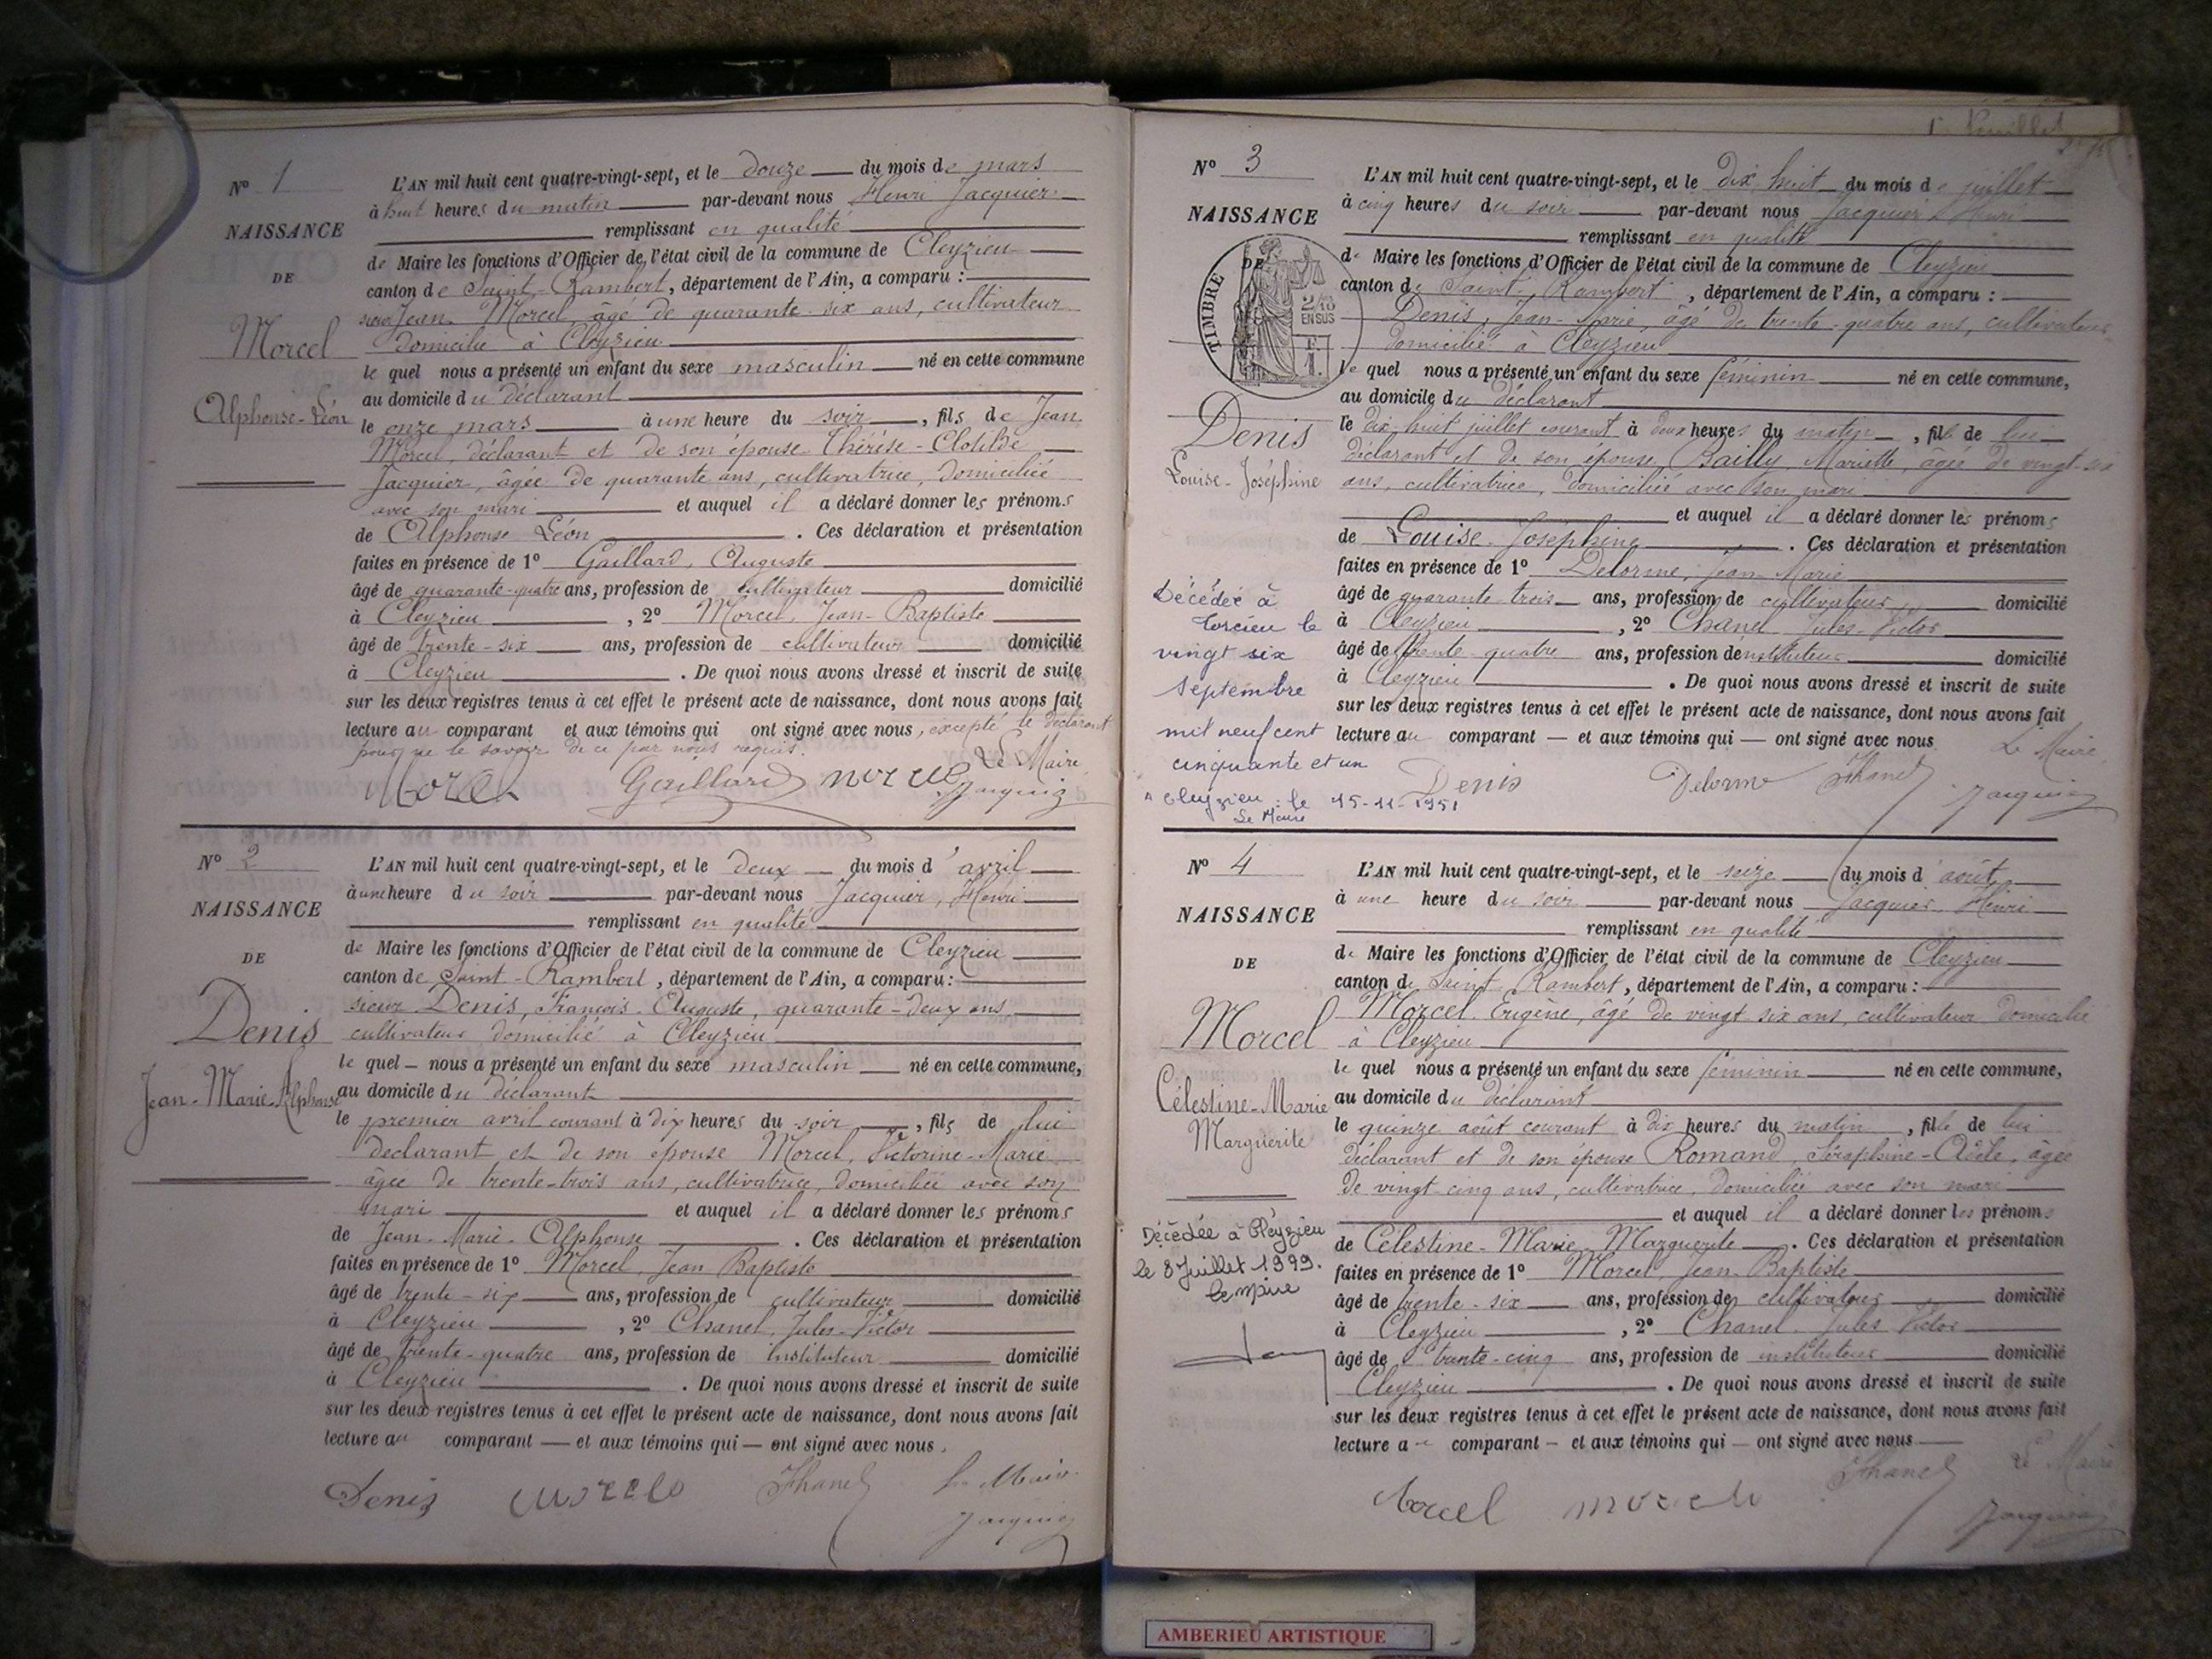 N° 1
NAISSANCE
DE
Morcel
Alphonse-Léon
L'AN mil huit cent quatre-vingt-sept, et le douze du mois de mars
à huit heures du matin par-devant nous Henri Jacquier
remplissant en qualité
de Maire les fonctions d'Officier de l'état civil de la commune de Cleyzieu
canton de Saint-Rambert, département de l'Ain, a comparu :
sieur Jean Morcel, âgé de quarante-six ans, cultivateur
domicilié à Cleyzieu
le quel nous a présenté un enfant du sexe masculin né en cette commune
au domicile du déclarant
le onze mars à une heure du soir, fils de Jean
Morcel, déclarant et de son épouse Thérèse-Clotilde
Jacquier, âgée de quarante ans, cultivatrice, domiciliée
avec son mari et auquel il a déclaré donner les prénoms
de Alphonse Léon. Ces déclaration et présentation
faites en présence de 1° Gaillard, Auguste
âgé de quarante-quatre ans, profession de cultivateur domicilié
à Cleyzieu, 2° Morcel, Jean-Baptiste
âgé de trente-six ans, profession de cultivateur domicilié
à Cleyzieu. De quoi nous avons dressé et inscrit de suite
sur les deux registres tenus à cet effet le présent acte de naissance, dont nous avons fait
lecture au comparant et aux témoins qui ont signé avec nous, excepté le déclarant
pour ne le savoir de ce par nous requis.
Le Maire
Morcel Gaillard Morcel Jacquier
N° 2
NAISSANCE
DE
Denis
Jean-Marie-Alphonse
L'AN mil huit cent quatre-vingt-sept, et le deux du mois d'avril
à une heure du soir par-devant nous Jacquier, Henri
remplissant en qualité
de Maire les fonctions d'Officier de l'état civil de la commune de Cleyzieu
canton de Saint-Rambert, département de l'Ain, a comparu :
sieur Denis, François-Auguste, quarante-deux ans
cultivateur domicilié à Cleyzieu
le quel nous a présenté un enfant du sexe masculin né en cette commune,
au domicile du déclarant
le premier avril courant à dix heures du soir, fils de lui
déclarant et de son épouse Morcel, Victorine-Marie
âgée de trente-trois ans, cultivatrice, domiciliée avec son
mari et auquel il a déclaré donner les prénoms
de Jean-Marie-Alphonse. Ces déclaration et présentation
faites en présence de 1° Morcel, Jean Baptiste
âgé de trente-six ans, profession de cultivateur domicilié
à Cleyzieu, 2° Chanel, Jules-Victor
âgé de trente-quatre ans, profession de instituteur domicilié
à Cleyzieu. De quoi nous avons dressé et inscrit de suite
sur les deux registres tenus à cet effet le présent acte de naissance, dont nous avons fait
lecture au comparant — et aux témoins qui — ont signé avec nous.
Denis Morcel Chanel Le Maire
Jacquier
1er feuillet
N° 3
NAISSANCE
DE
TIMBRE
2/10 EN SUS
F. 1.
Denis
Louise-Joséphine
L'AN mil huit cent quatre-vingt-sept, et le dix huit du mois de juillet
à cinq heures du soir par-devant nous Jacquier Henri
remplissant en qualité
de Maire les fonctions d'Officier de l'état civil de la commune de Cleyzieu
canton de Saint-Rambert, département de l'Ain, a comparu :
Denis, Jean-Marie, âgé de trente-quatre ans, cultivateur
domicilié à Cleyzieu
le quel nous a présenté un enfant du sexe féminin né en cette commune,
au domicile du déclarant
le dix-huit juillet courant à deux heures du matin, fille de lui
déclarant et de son épouse, Bailly, Mariette, âgée de vingt-six
ans, cultivatrice, domiciliée avec son mari
et auquel il a déclaré donner les prénoms
de Louise-Joséphine. Ces déclaration et présentation
faites en présence de 1° Delorme, Jean Marie
âgé de quarante trois ans, profession de cultivateur domicilié
à Cleyzieu, 2° Chanel Jules-Victor
âgé de trente-quatre ans, profession de instituteur domicilié
à Cleyzieu. De quoi nous avons dressé et inscrit de suite
sur les deux registres tenus à cet effet le présent acte de naissance, dont nous avons fait
lecture au comparant — et aux témoins qui — ont signé avec nous
Le Maire
Denis Delorme Chanel Jacquier
Décédée à
Torcieu le
vingt six
septembre
mil neuf cent
cinquante et un
A Cleyzieu le 15-11-1951
Le Maire
N° 4
NAISSANCE
DE
Morcel
Célestine-Marie
Marguerite
L'AN mil huit cent quatre-vingt-sept, et le seize du mois d'août
à une heure du soir par-devant nous Jacquier, Henri
remplissant en qualité
de Maire les fonctions d'Officier de l'état civil de la commune de Cleyzieu
canton de Saint-Rambert, département de l'Ain, a comparu :
Morcel, Eugène, âgé de vingt six ans, cultivateur domicilié
à Cleyzieu
le quel nous a présenté un enfant du sexe féminin né en cette commune,
au domicile du déclarant
le quinze août courant à dix heures du matin, fille de lui
déclarant et de son épouse Romand, Séraphine-Adèle, âgée
de vingt-cinq ans, cultivatrice, domiciliée avec son mari
et auquel il a déclaré donner les prénoms
de Célestine-Marie-Marguerite. Ces déclaration et présentation
faites en présence de 1° Morcel, Jean-Baptiste
âgé de trente-six ans, profession de cultivateur domicilié
à Cleyzieu, 2° Chanel, Jules Victor
âgé de trente-cinq ans, profession de instituteur domicilié
Cleyzieu. De quoi nous avons dressé et inscrit de suite
sur les deux registres tenus à cet effet le présent acte de naissance, dont nous avons fait
lecture au comparant — et aux témoins qui — ont signé avec nous
Chanel Le Maire
Morcel Morcel Jacquier
Décédée à Cleyzieu
le 8 Juillet 1999.
AMBERIEU ARTISTIQUE